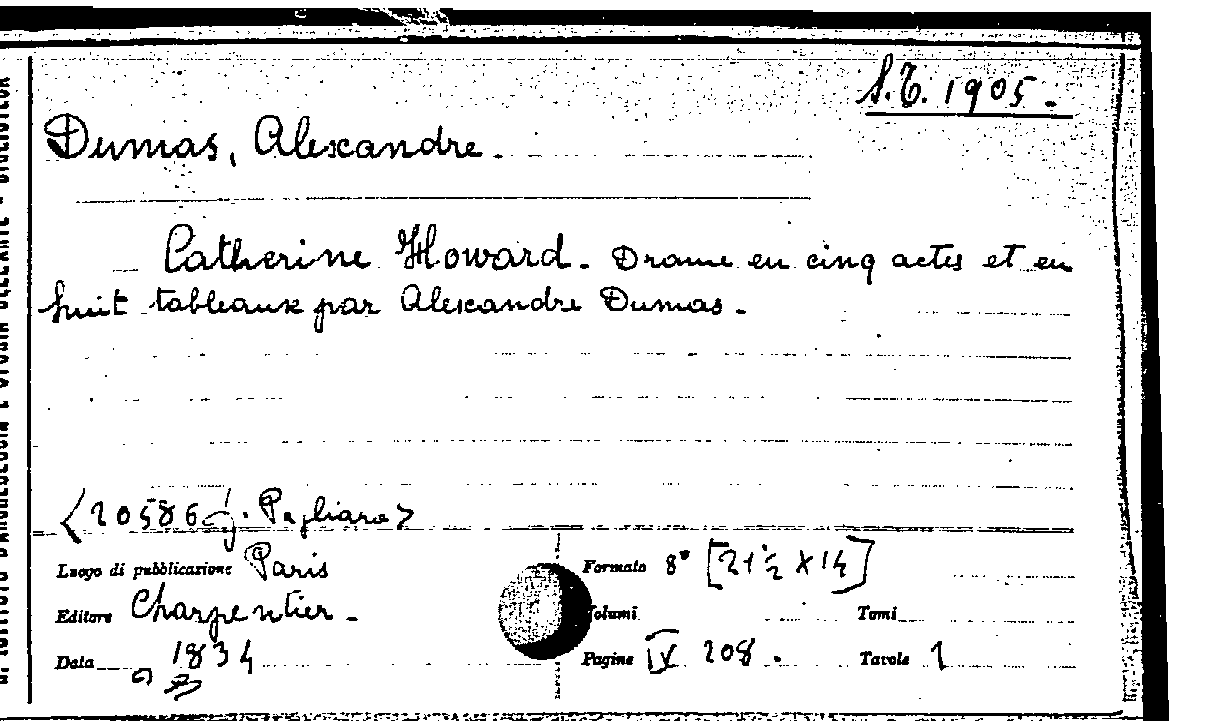 S.T. 1905.
Dumas, Alexandre.
Catherine Howard. Drame en cinq actes et en
huit tableaux par Alexandre Dumas.
<20586 g. Pagliara>
Luogo di pubblicazione Paris
Formato 8° [21½ X 14]
Editore Charpentier.
Volumi Tomi
Data 1834
Pagine IV 208. Tavole 1